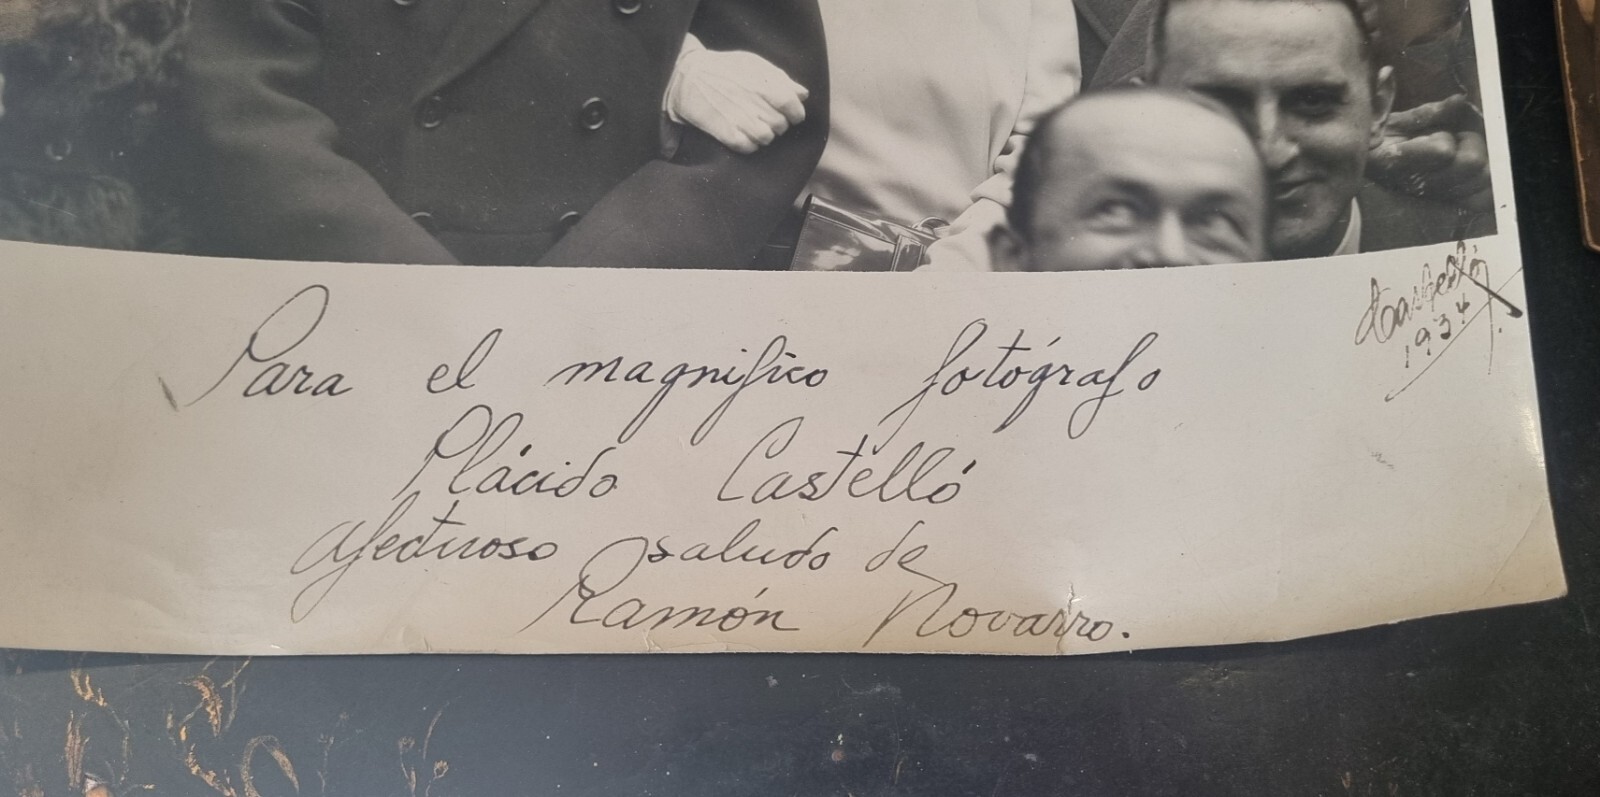 Castelló
1934
Para el magnífico fotógrafo
Plácido Castelló
afectuoso saludo de
Ramón Novarro.